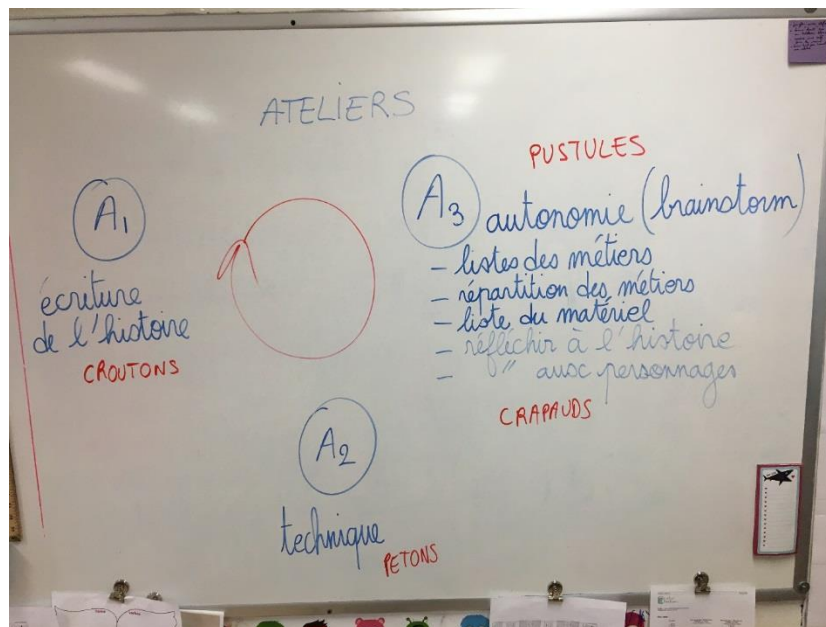 ATELIERS
A1
écriture
de l'histoire
CROUTONS
A2
technique
PETONS
PUSTULES
A3 autonomie (brainstorm)
- listes des métiers
- répartition des métiers
- liste du matériel
- réfléchir à l'histoire
- " aux personnages
CRAPAUDS